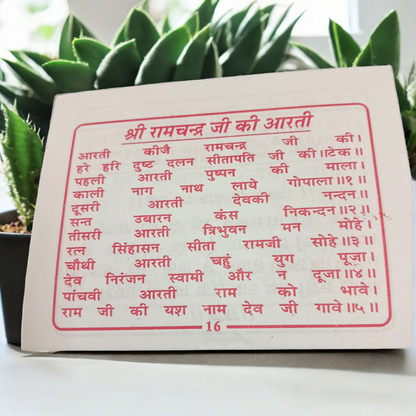 श्री रामचन्द्र जी की आरती
आरती कीजै रामचन्द्र जी की।
हरे हरि दुष्ट दलन सीतापति जी की॥टेक॥
पहली आरती पुष्पन की माला।
काली नाग नाथ लाये गोपाला॥१॥
दूसरी आरती देवकी नन्दन।
सन्त उबारन कंस निकन्दन॥२॥
तीसरी आरती त्रिभुवन मन मोहे।
रत्न सिंहासन सीता रामजी सोहे॥३॥
चौथी आरती चहुं युग पूजा।
देव निरंजन स्वामी और न दूजा॥४॥
पांचवी आरती राम को भावे।
राम जी की यश नाम देव जी गावे॥५॥
16